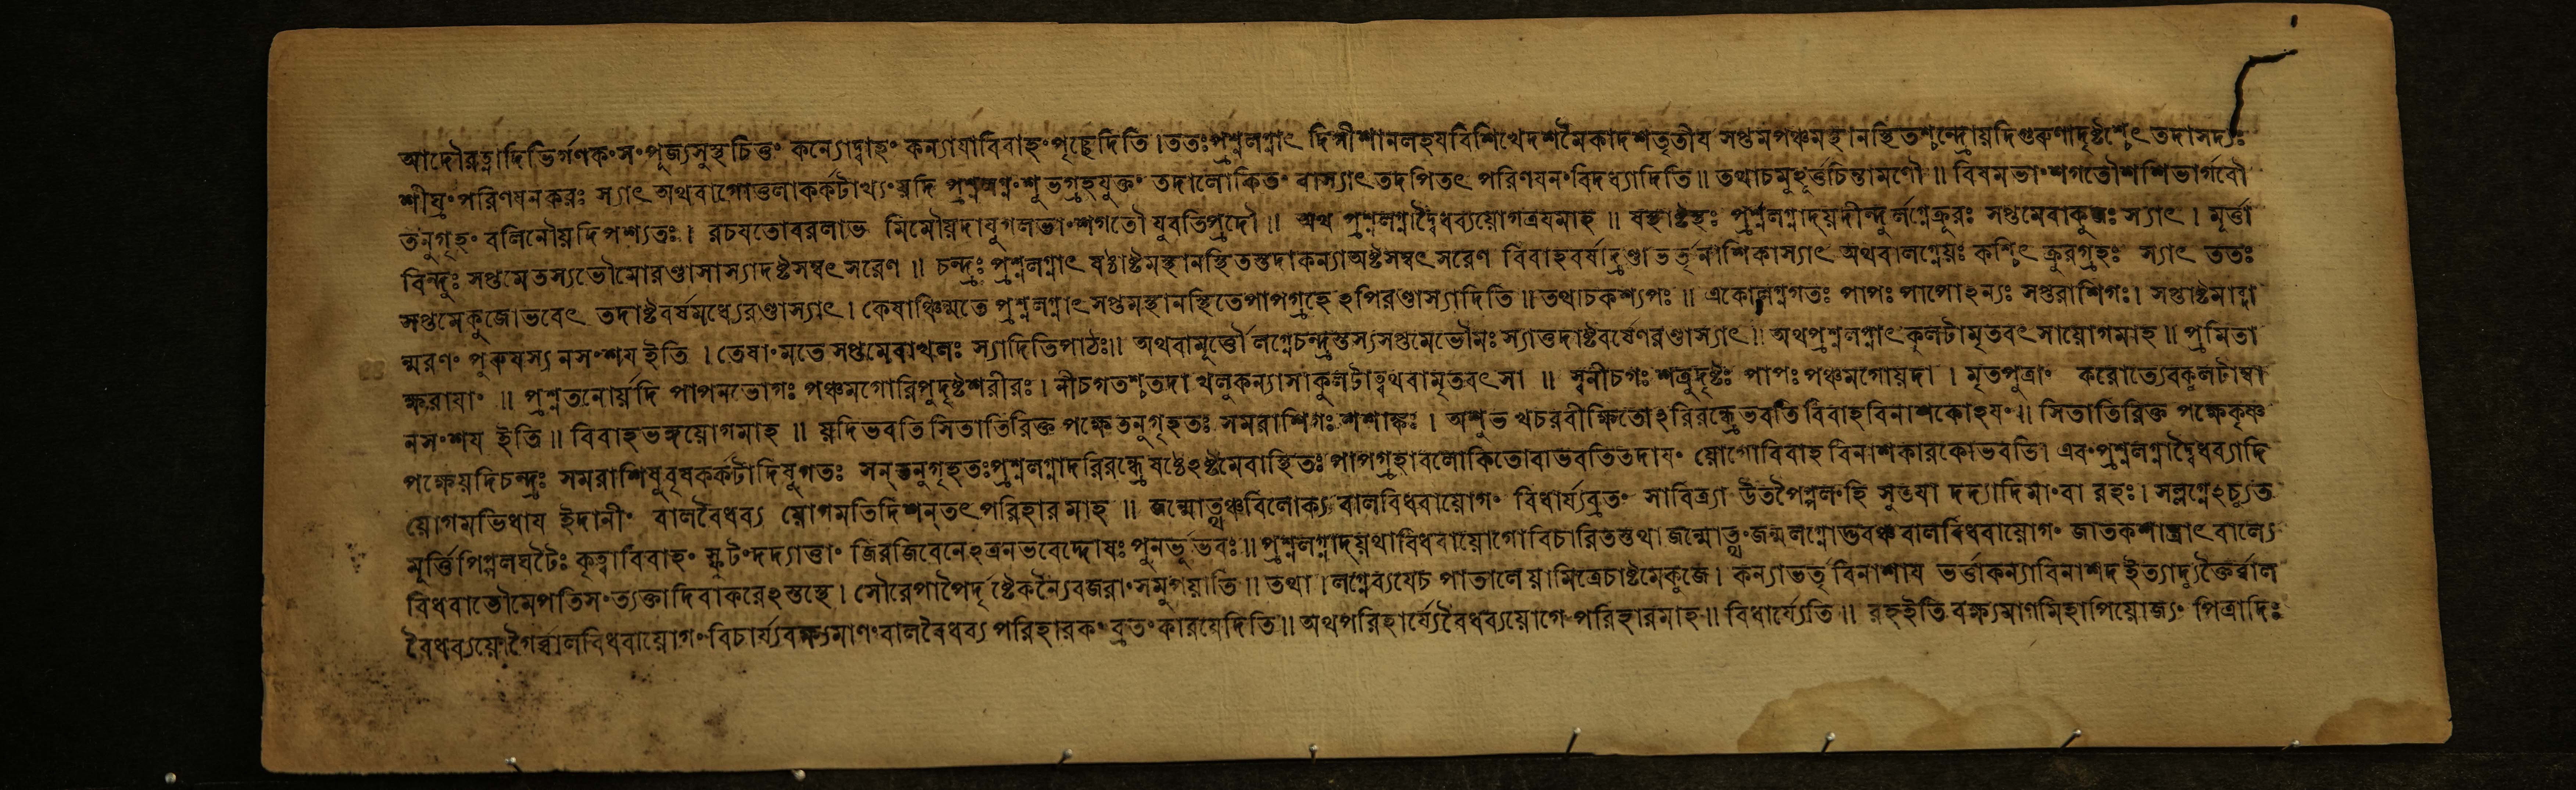 আদৌরত্নাদিভির্গণকংসংপূজ্যসুস্থচিত্তং কন্যোদ্বাহং কন্যাযাবিবাহংপৃচ্ছেদিতি।ততঃপ্রশ্নলগ্নাৎ দশমৈকাদশতৃতীয সপ্তমপঞ্চমস্থানস্থিতশ্চন্দ্রোয়দিগুরুণাদৃষ্টশ্চেৎ তদাসদ্যঃ
শীঘ্রংপরিণযনকরঃ স্যাৎ অথবাগোত্তুলাকর্কটাখ্যংয়দি প্রশ্নলগ্নংশুভগ্রহযুক্তং তদালোকিতং বাস্যাৎ তদপিতৎ পরিণযনংবিদধ্যাদিতি॥ তথাচমুহূর্ত্তচিন্তামণৌ॥ বিষমভাংশগতৌশশিভার্গবৌ
তনুগৃহং বলিনৌয়দিপশ্যতঃ। রচযতোবরলাভ মিমৌয়দাযুগলভাংশগতৌ যুবতিপ্রদৌ॥ অথ প্রশ্নলগ্নাদ্বৈধব্যয়োগত্রযমাহ॥ ষষ্ঠাষ্টস্থঃ প্রশ্নলগ্নাদ্য়দীন্দুর্লগ্নেক্রূরঃ সপ্তমেবাকুজঃ স্যাৎ। মূর্ত্তা
বিন্দুঃ সপ্তমেতস্যভৌমোরণ্ডাসাস্যাদষ্টসম্বৎসরেণ॥ চন্দ্রঃ প্রশ্নলগ্নাৎ ষষ্ঠাষ্টমস্থানস্থিতস্তদাকন্যাঅষ্টসম্বৎসরেণ বিবাহবর্ষাদ্রণ্ডাভর্তৃনাশিকাস্যাৎ অথবালগ্নেয়ঃ কশ্চিৎ ক্রূরগ্রহঃ স্যাৎ ততঃ
সপ্তমেকুজোভবেৎ তদাষ্টবর্ষমধ্যেরণ্ডাস্যাৎ। কেষাঞ্চিন্মতে প্রশ্নলগ্নাৎসপ্তমস্থানস্থিতেপাপগ্রহেঽপিরণ্ডাস্যাদিতি॥ তথাচকশ্যপঃ॥ একোলগ্নগতঃ পাপঃ পাপোঽন্যঃ সপ্তরাশিগঃ। সপ্তাষ্টমাব্দা
ন্মরণং পুরুষস্য নসংশয ইতি। তেষাংমতে সপ্তমেবাখলঃ স্যাদিতিপাঠঃ॥ অথবামূর্ত্তৌ লগ্নেচন্দ্রস্তস্যসপ্তমেভৌমঃ স্যাত্তদাষ্টবর্ষেণরণ্ডাস্যাৎ॥ অথপ্রশ্নলগ্নাৎকুলটামৃতবৎসায়োগমাহ॥ প্রমিতা
ক্ষরাযাং॥ প্রশ্নতনোর্য়দি পাপনভোগঃ পঞ্চমগোরিপুদৃষ্টশরীরঃ। নীচগতশ্চতদা খলুকন্যাসাকুলটাত্বথবামৃতবৎসা॥ স্বনীচগঃ শত্রুদৃষ্টঃ পাপঃ পঞ্চমগোয়দা। মৃতপুত্রাং করোত্যেবকুলটাম্বা
নসংশয ইতি॥ বিবাহভঙ্গয়োগমাহ॥ য়দিভবতিসিতাতিরিক্ত পক্ষেতনুগৃহতঃ সমরাশিগঃ শশাঙ্কঃ। অশুভ খচরবীক্ষিতোঽরিরন্ধ্রেভবতিবিবাহবিনাশকোঽযং॥ সিতাতিরিক্ত পক্ষেকৃষ্ণ
পক্ষেয়দিচন্দ্রঃ সমরাশিষুবৃষকর্কটাদিষুগতঃ সন্‌তনুগৃহতঃপ্রশ্নলগ্নাদরিরন্ধ্রেষষ্ঠেঽষ্টমেবাস্থিতঃপাপগ্রহাবলোকিতোবাভবতিতদাযং য়োগোবিবাহ বিনাশকারকোভবতি। এবংপ্রশ্নলগ্নাদ্বৈধব্যাদি
য়োগমভিধায ইদানীং বালবৈধব্য য়োগমতিদিশন্‌তৎপরিহারমাহ॥ জন্মোত্থঞ্চবিলোক্য বালবিধবায়োগং বিধার্য্যব্রতং সাবিত্র্যা উতপৈপ্পলংহি সুতযা দদ্যাদিমাংবা রহঃ। সল্লগ্নেঽচ্যুত
মূর্ত্তিপিপ্পলঘটৈঃ কৃত্বাবিবাহং স্ফুটংদদ্যাত্তাং ঽত্রনভবেদ্দোষঃ পুনর্ভূভবঃ॥ প্রশ্নলগ্নাদ্য়থাবিধবায়োগোবিচারিতস্তথা জন্মোত্থংজন্মলগ্নোদ্ভবঞ্চ বালবিধবায়োগং জাতকশাস্ত্রাৎ বাল্যে
বিধবাভৌমেপতিসংত্যক্তাদিবাকরেঽস্তস্থে। সৌরেপাপৈর্দৃষ্টেকন্যৈবজরাংসমুপয়াতি॥ তথা। লগ্নেব্যযেচ পাতালে য়ামিত্রেচাষ্টমেকুজে। কন্যাভর্তৃবিনাশায ভর্ত্তাকন্যাবিনাশদ ইত্যাদ্যুক্তৈর্ব্বাল
বৈধব্যয়োগৈর্ব্বালবিধবায়োগংবিচার্য্যবক্ষ্যমাণংবালবৈধব্য পরিহারকংব্রতংকারযেদিতি॥ অথপরিহার্য্যেবৈধব্যয়োগে পরিহারমাহ॥ বিধার্য্যেতি॥ রহইতি বক্ষ্যমাণমিহাপিয়োজ্যং পিত্রাদিঃ